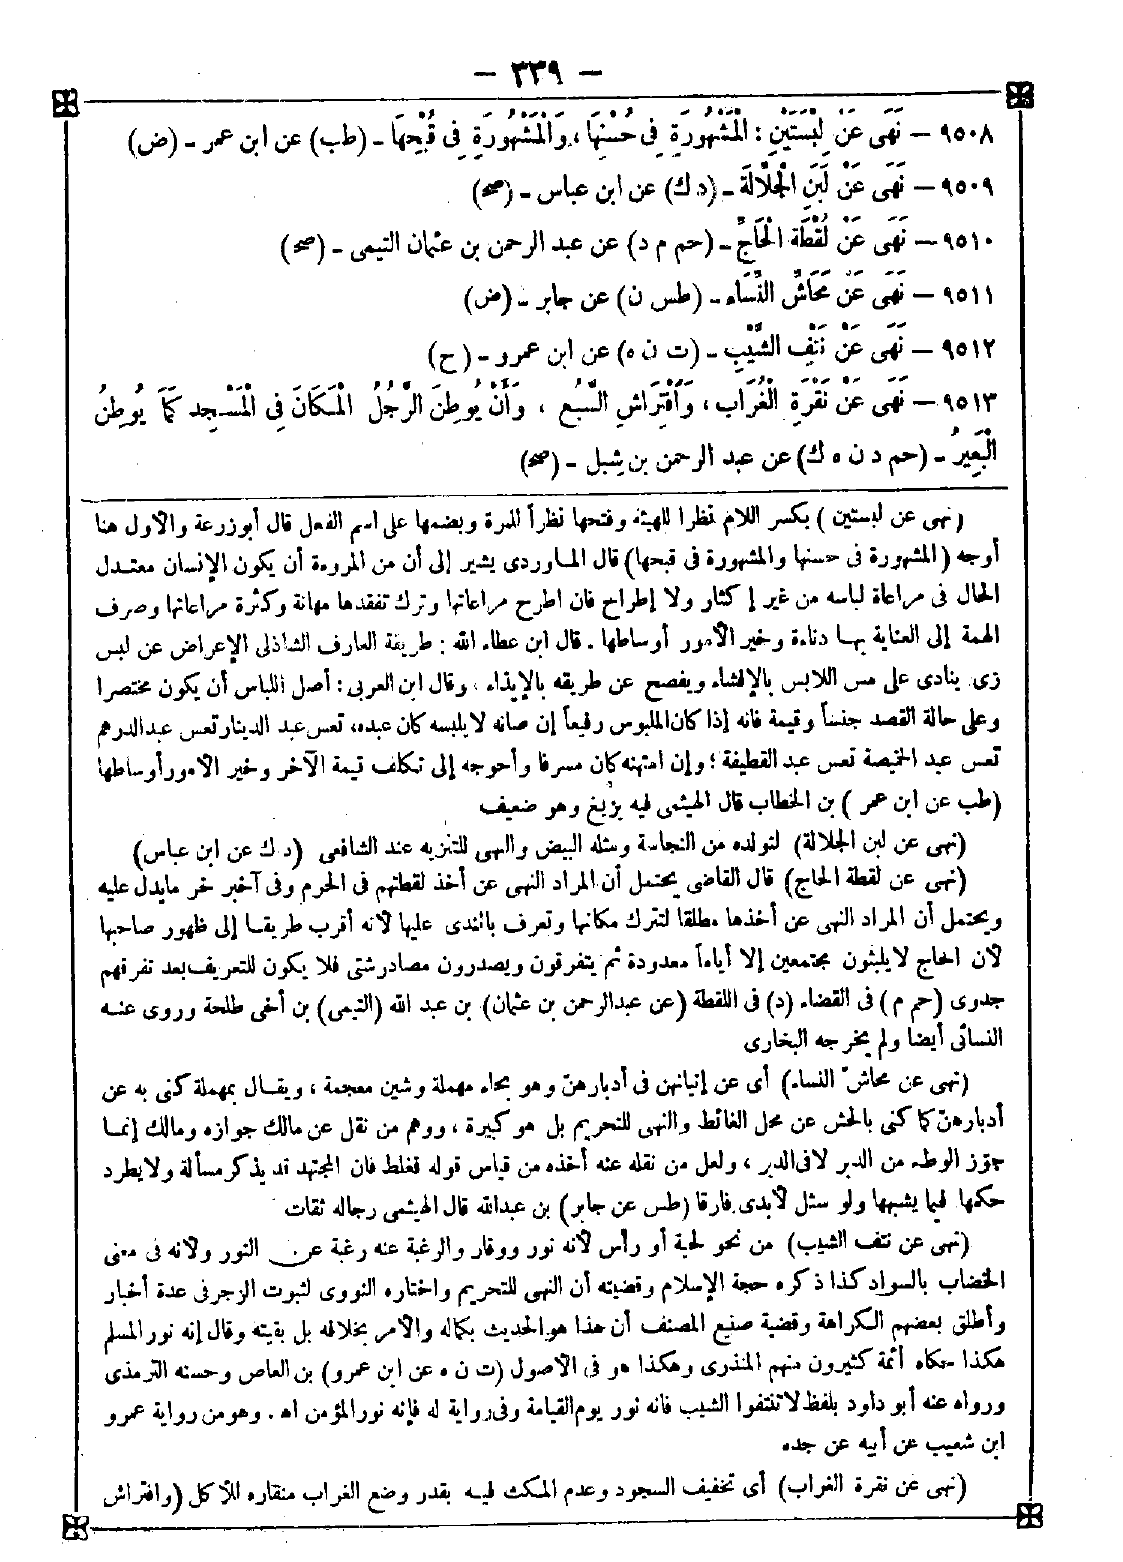 — ٣٣٩ —
٩٥٠٨ — نَهَى عَنْ لِبْسَتَيْنِ : الْمَشْهُورَةِ فِى حُسْنِهَا ، وَالْمَشْهُورَةِ فِى قُبْحِهَا - (طب) عن ابن عمر - (ض)
٩٥٠٩ — نَهَى عَنْ لَبَنِ الْجَلَّالَةِ - (د ك) عن ابن عباس - (صح)
٩٥١٠ — نَهَى عَنْ لُقْطَةِ الْحَاجِّ - (حم م د) عن عبد الرحمن بن عثمان التيمى - (صح)
٩٥١١ — نَهَى عَنْ مَحَاشِّ النِّسَاءِ - (طس ن) عن جابر - (ض)
٩٥١٢ — نَهَى عَنْ نَتْفِ الشَّيْبِ - (ت ن ه) عن ابن عمرو - (ح)
٩٥١٣ — نَهَى عَنْ نَقْرَةِ الْغُرَابِ ، وَافْتِرَاشِ السَّبُعِ ، وَأَنْ يُوطِنَ الرَّجُلُ الْمَكَانَ فِى الْمَسْجِدِ كَمَا يُوطِنُ
الْبَعِيرُ - (حم د ن ه ك) عن عبد الرحمن بن شبل - (صح)
(نهى عن لبستين) بكسر اللام نظرا للهيئة وفتحها نظراً للمرة وبضمها على اسم الفعل قال أبو زرعة والأول هنا
أوجه (المشهورة فى حسنها والمشهورة فى قبحها) قال الماوردى يشير إلى أن من المروءة أن يكون الإنسان معتدل
الحال فى مراعاة لباسه من غير إكثار ولا إطراح فان اطرح مراعاتها وترك تفقدها مهانة وكثرة مراعاتها وصرف
الهمة إلى العناية بها دناءة وخير الأمور أوساطها . قال ابن عطاء الله : طريقة العارف الشاذلى الإعراض عن لبس
زى ينادى على مس اللابس بالإفشاء ويفصح عن طريقه بالإيذاء ، وقال ابن العربى : أصل اللباس أن يكون مختصرا
وعلى حالة القصد جنساً وقيمة فانه إذا كان الملبوس رفيعاً إن صانه لابلبسه كان عبده، تعس عبد الدينار تعس عبد الدرهم
تعس عبد الخميصة تعس عبد القطيفة ؛ وإن امتهنه كان مسرفا وأحوجه إلى تكلف قيمة الآخر وخير الأمور أوساطها
(طب عن ابن عمر) بن الخطاب قال الهيثمى فيه بزيغ وهو ضعيف
(نهى عن لبن الجلالة) لتولده من النجاسة ومثله البيض والنهى للتنزيه عند الشافعى (د ك عن ابن عباس)
(نهى عن لقطة الحاج) قال القاضى يحتمل أن المراد النهى عن أخذ لقطتهم فى الحرم وفى آخبر خر مايدل عليه
ويحتمل أن المراد النهى عن أخذها مطلقا لتترك مكانها وتعرف بالندى عليها لأنه أقرب طريقا إلى ظهور صاحبها
لأن الحاج لا يلبثون مجتمعين إلا أياماً معدودة ثم يتفرقون ويصدرون مصادر شتى فلا يكون للتعريف بعد تفرقهم
جدوى (حم م) فى القضاء (د) فى اللقطة (عن عبد الرحمن بن عثمان) بن عبد الله (التيمى) بن أخى طلحة وروى عنه
النسائى أيضا ولم يخرجه البخارى
(نهى عن محاشّ النساء) أى عن إتيانهن فى أدبارهنّ وهو بحاء مهملة وشين معجمة ، ويقال بمهملة كنى به عن
أدبارهنّ كما كنى بالحش عن محل الغائط والنهى للتحريم بل هو كبيرة ، ووهم من نقل عن مالك جوازه ومالك إنما
جوّز الوطء من الدبر لا فى الدبر ، ولعل من نقله عنه أخذه من قياس قوله فغلط فان المجتهد قد يذكر مسألة ولا يطرد
حكمها فيما يشبهها ولو سئل لأبدى فارقا (طس عن جابر) بن عبدالله قال الهيثمى رجاله ثقات
(نهى عن نتف الشيب) من نحو لحية أو رأس لأنه نور ووقار والرغبة عنه رغبة عن النور ولأنه فى معنى
الخضاب بالسواد كذا ذكره حجة الإسلام وقضيته أن النهى للتحريم واختاره النووى لثبوت الزجر فى عدة أخبار
وأطلق بعضهم الكراهة وقضية صنيع المصنف أن هذا هو الحديث بكماله والأمر بخلافه بل بقيته وقال إنه نور المسلم
هكذا حكاه أئمة كثيرون منهم المنذرى وهكذا هو فى الأصول (ت ن ه عن ابن عمرو) بن العاص وحسنه الترمذى
ورواه عنه أبو داود بلفظ لا تنتفوا الشيب فانه نور يوم القيامة وفى رواية له فإنه نور المؤمن اه . وهو من رواية عمرو
ابن شعيب عن أبيه عن جده
(نهى عن نقرة الغراب) أى تخفيف السجود وعدم المكث فيه بقدر وضع الغراب منقاره للأكل (وافتراش